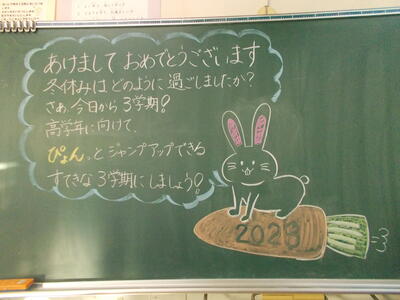 あけまして おめでとうございます
冬休みは どのように 過ごしましたか？
さあ、今日から 3学期！
高学年に向けて、
ぴょんっと ジャンプアップできる
すてきな 3学期に しましょう！
2023